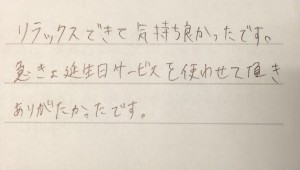 リラックスできて気持ち良かったです。
急きょ誕生日サービスを使わせて頂き
ありがたかったです。